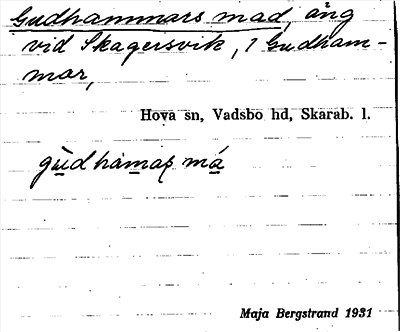 Gudhammars mad, äng
vid Skagersvik, i Gudham-
mar,
Hova sn, Vadsbo hd, Skarab. l.
gùdhamaṣ má
Maja Bergstrand 1931